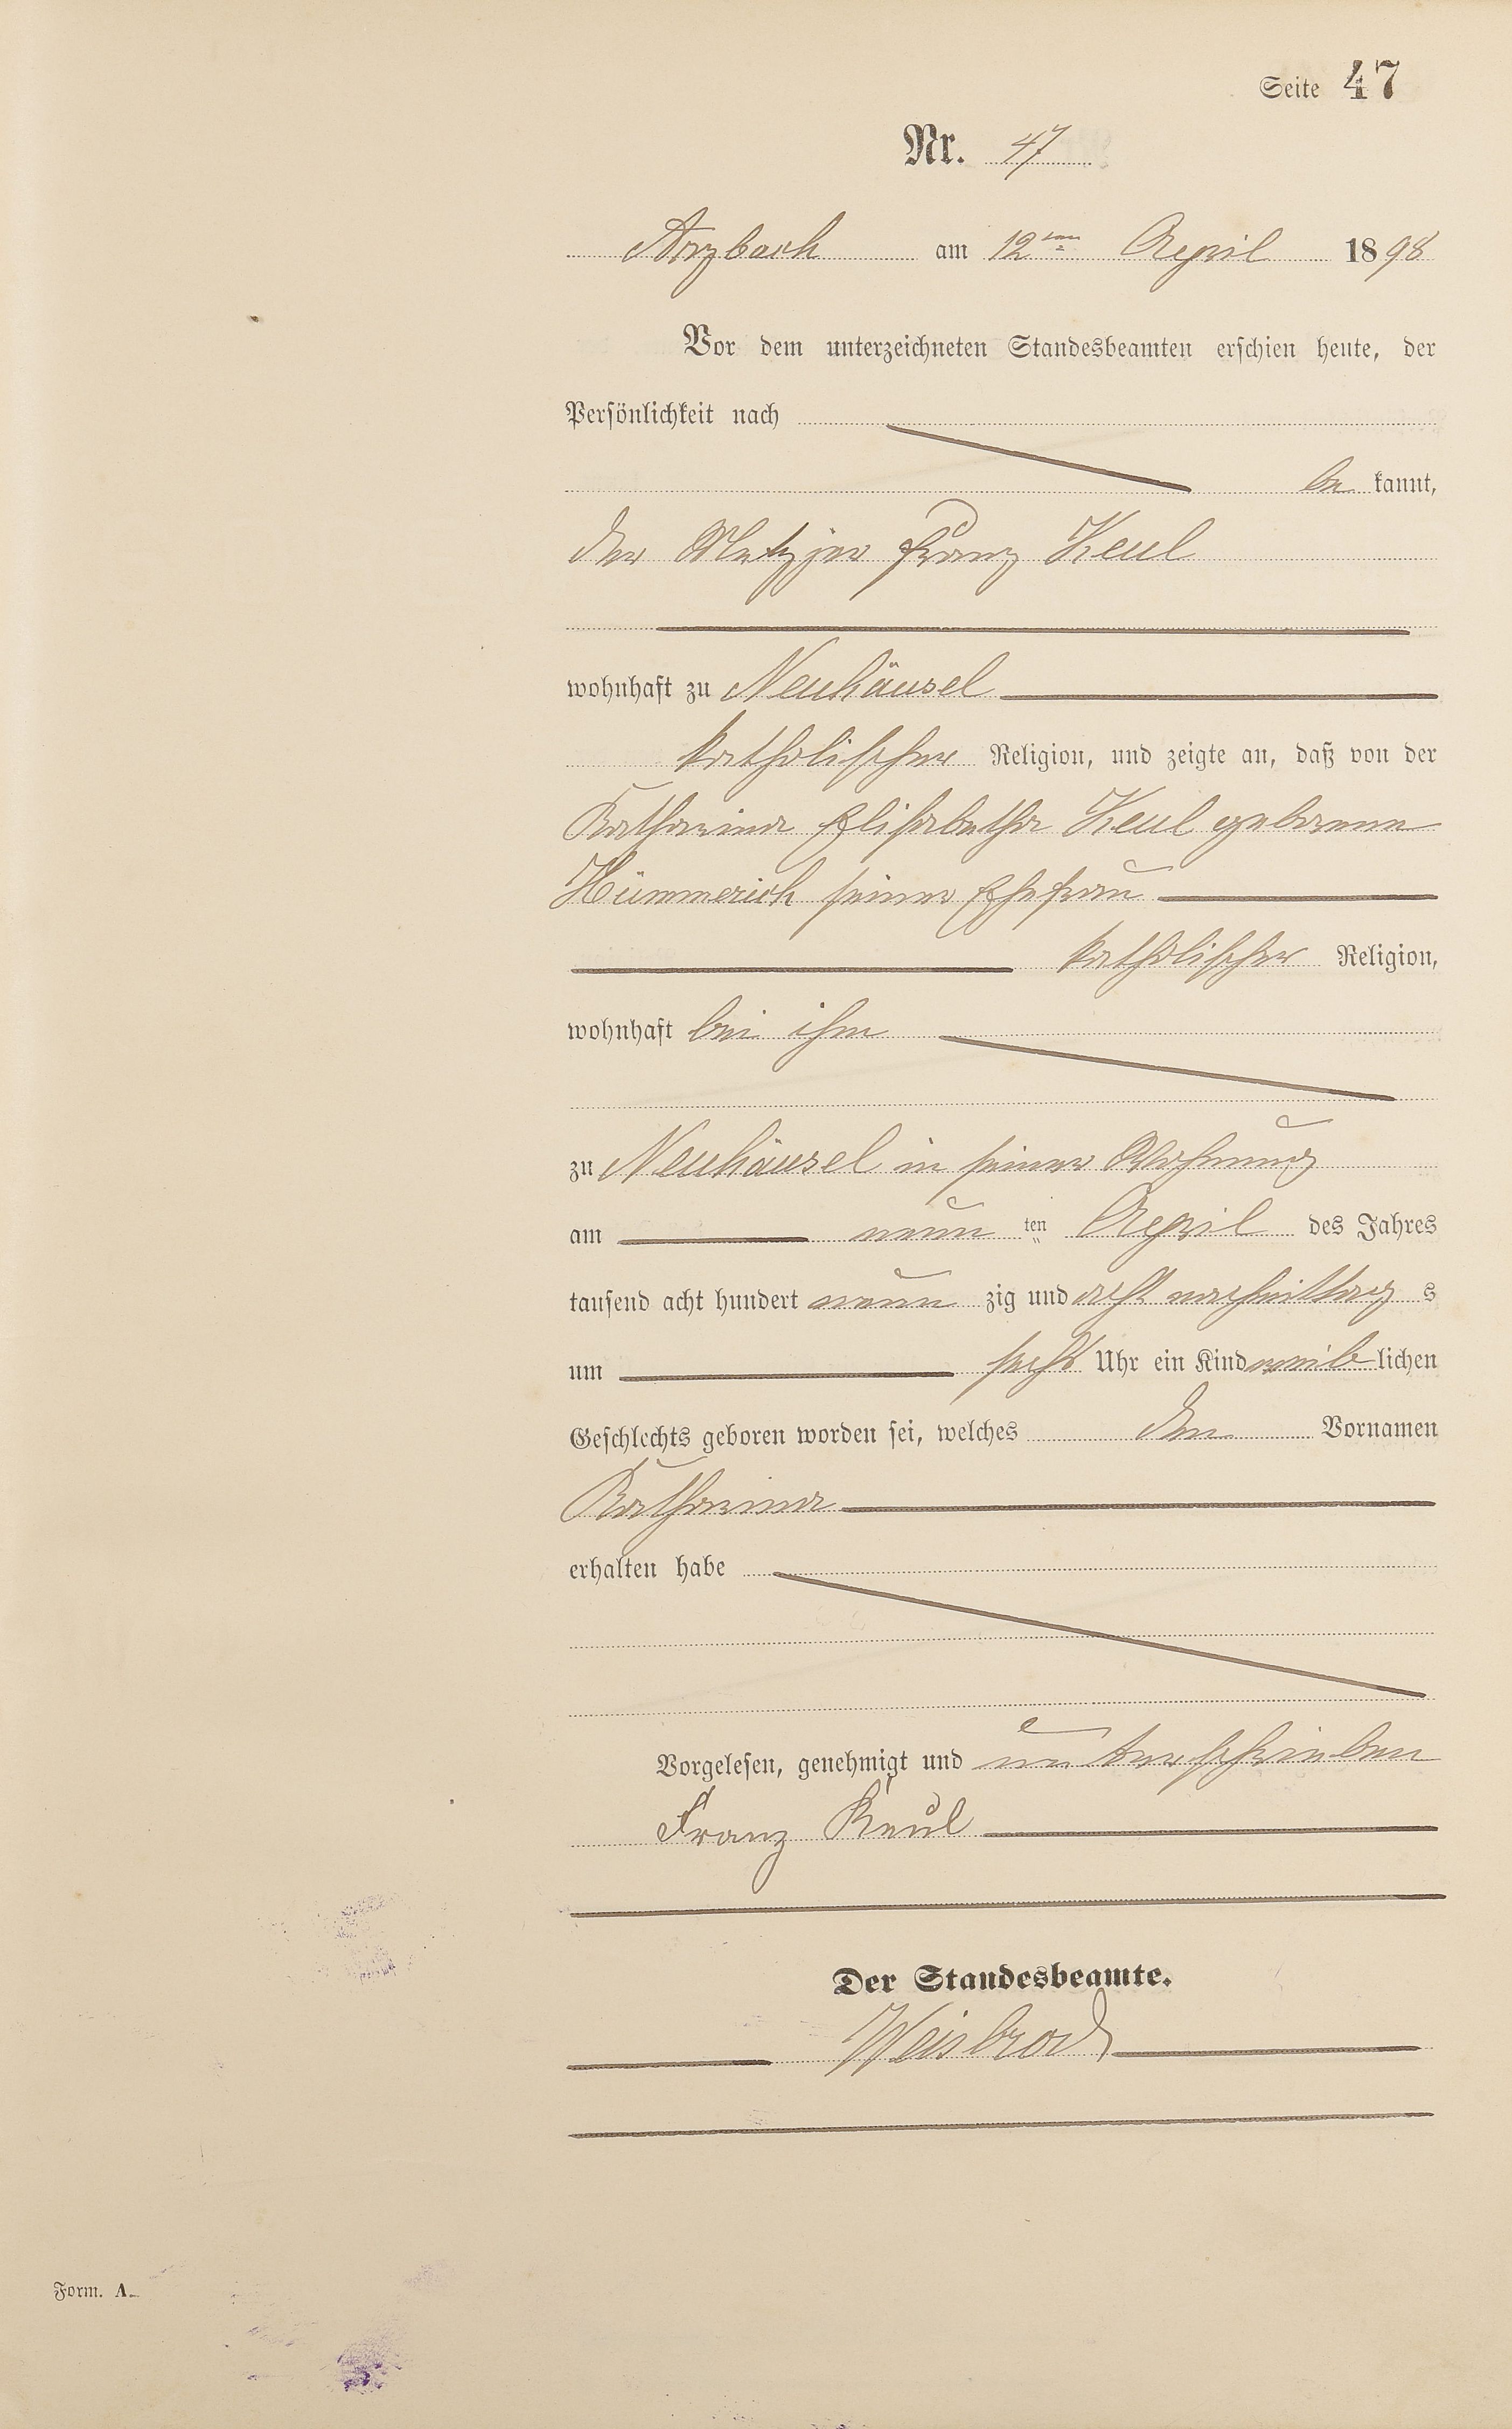 Seite 47
Nr. 47
Arzbach am 12ten April 1898
Vor dem unterzeichneten Standesbeamten erschien heute, der
Persönlichkeit nach
be kannt,
der Metzger Franz Keul
wohnhaft zu Neuhäusel
katholischer Religion, und zeigte an, daß von der
Katharina Elisabetha Keul geborene
Hümmerich seiner Ehefrau
katholischer Religion,
wohnhaft bei ihm
zu Neuhäusel in seiner Wohnung
am neun ten April des Jahres
tausend acht hundert neun zig und acht nachmittag s
um sechs Uhr ein Kind weib lichen
Geschlechts geboren worden sei, welches den Vornamen
Katharina
erhalten habe
Vorgelesen, genehmigt und unterschrieben
Franz Keul
Der Standesbeamte.
Weisbrod
Form. A.